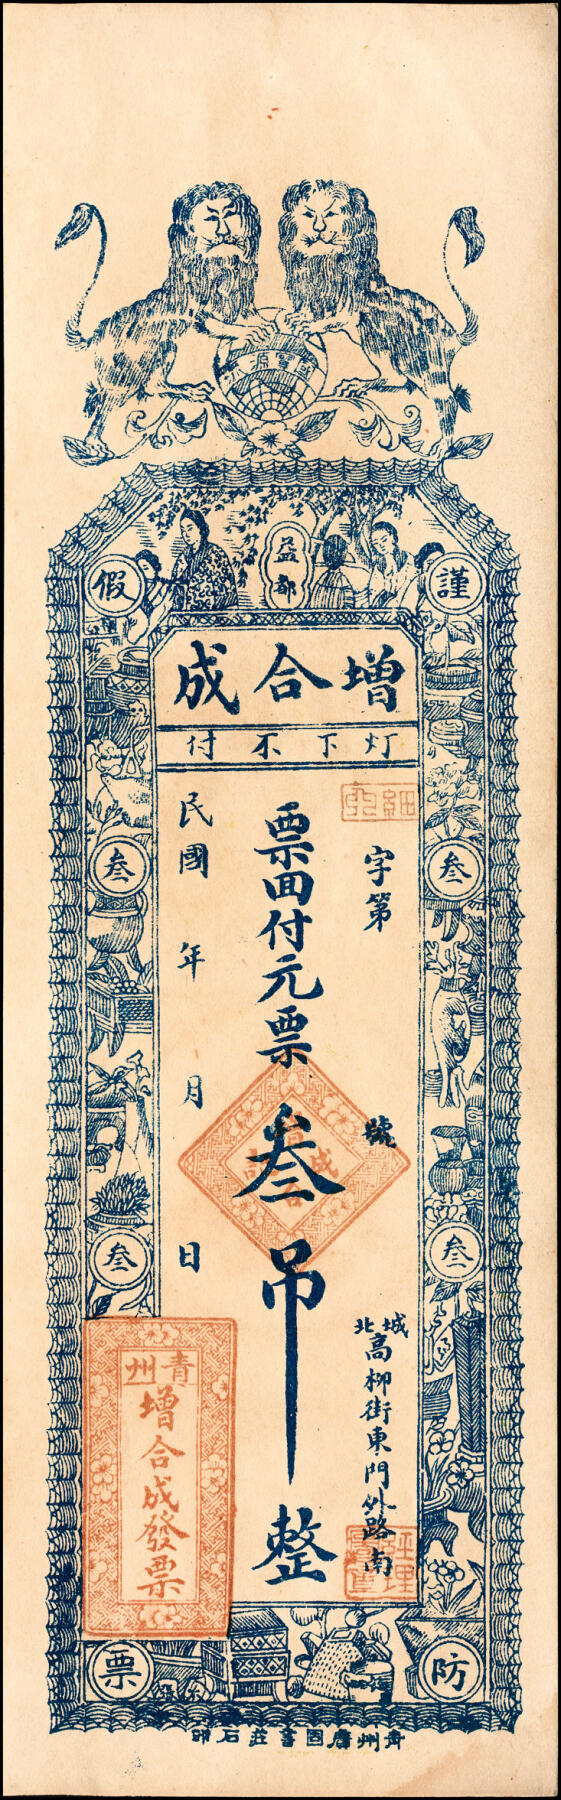 益都
謹
防
假
票
增合成
灯下不付
字第 號
票面付元票叁吊整
民國 年 月 日
城北高柳街東門外路南
叁
叁
叁
叁
青州
增合成發票
青州廣固書莊石印